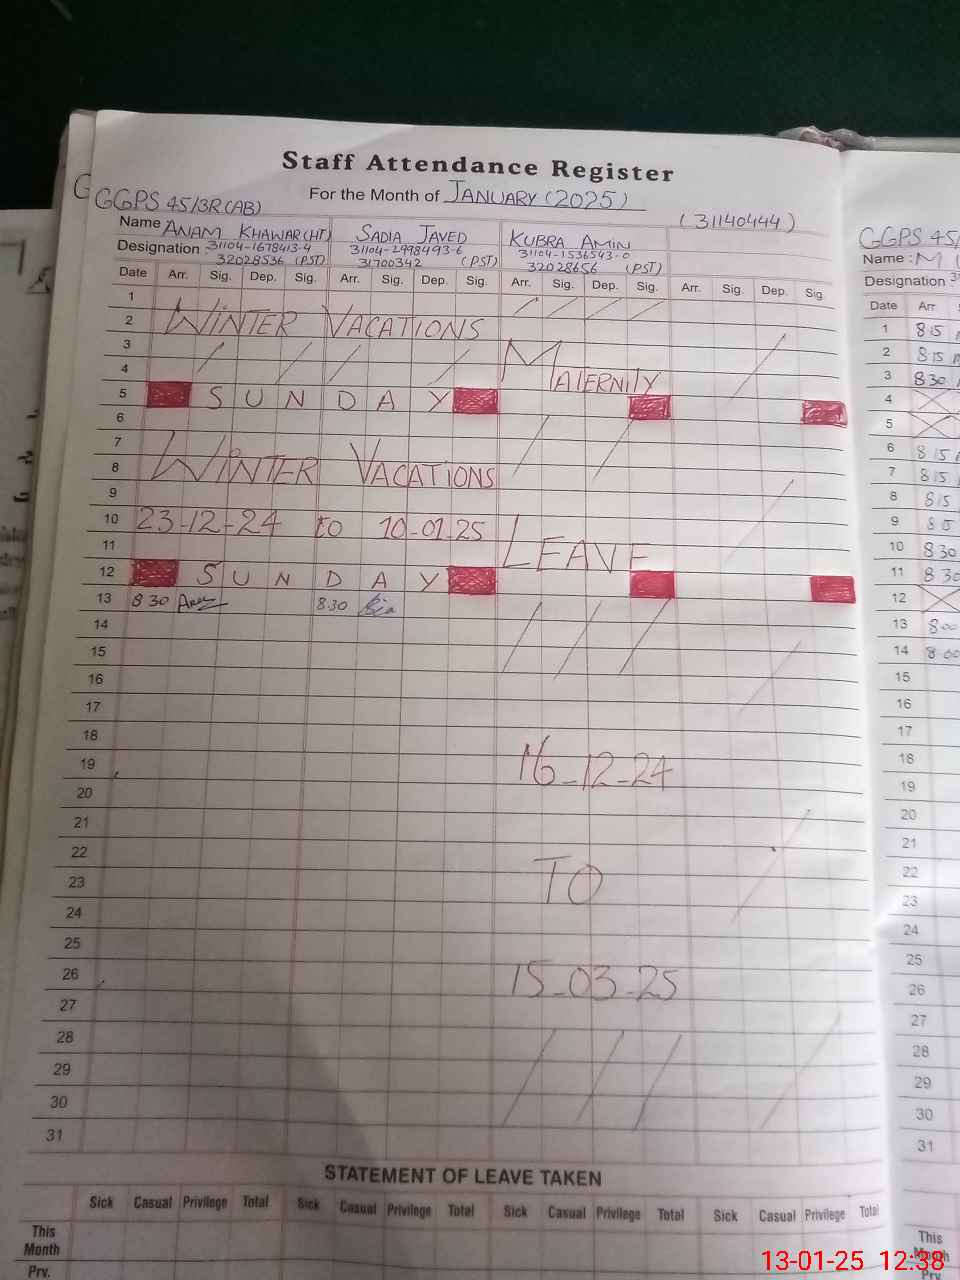 Staff Attendance Register
For the Month of JANUARY (2025)
GGPS 45/3R(AB)
(31140444)
Name ANAM KHAWAR(HT) SADIA JAVED KUBRA AMIN
Designation : 31104-1678413-4 31104-2998493-6 31104-1536543-0
32028536 (PST) 31700342 (PST) 32028656 (PST)
Date Arr. Sig. Dep. Sig. Arr. Sig. Dep. Sig. Arr. Sig. Dep. Sig. Arr. Sig. Dep. Sig.
1
2 WINTER VACATIONS
3
4 MATERNITY
5 SUNDAY
6
7
8 WINTER VACATIONS
9
10 23-12-24 to 10-01-25
11 LEAVE
12 SUNDAY
13 8 30 8.30
14
15
16
17
18
19 16-12-24
20
21
22
23 TO
24
25
26 15-03-25
27
28
29
30
31
STATEMENT OF LEAVE TAKEN
Sick Casual Privilege Total Sick Casual Privilege Total Sick Casual Privilege Total Sick Casual Privilege Total
This Month
Prv.
GGPS 45/
Name : M
Designation
Date Arr
1 8 15
2 8 15
3 8 30
4
5
6 8 15
7 8 15
8 8 15
9 8 15
10 8 30
11 8 30
12
13 8 00
14 8 00
15
16
17
18
19
20
21
22
23
24
25
26
27
28
29
30
31
This Month
Prv
13-01-25 12:38